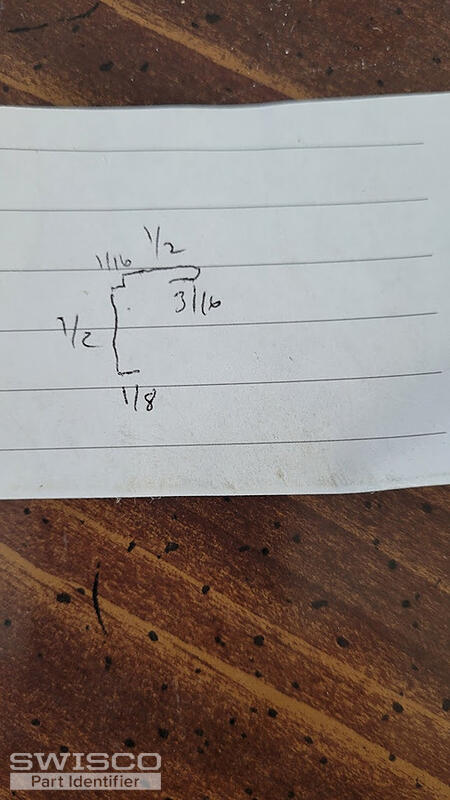 1/2
1/16
3/16
1/2
1/8
SWISCO
Part Identifier